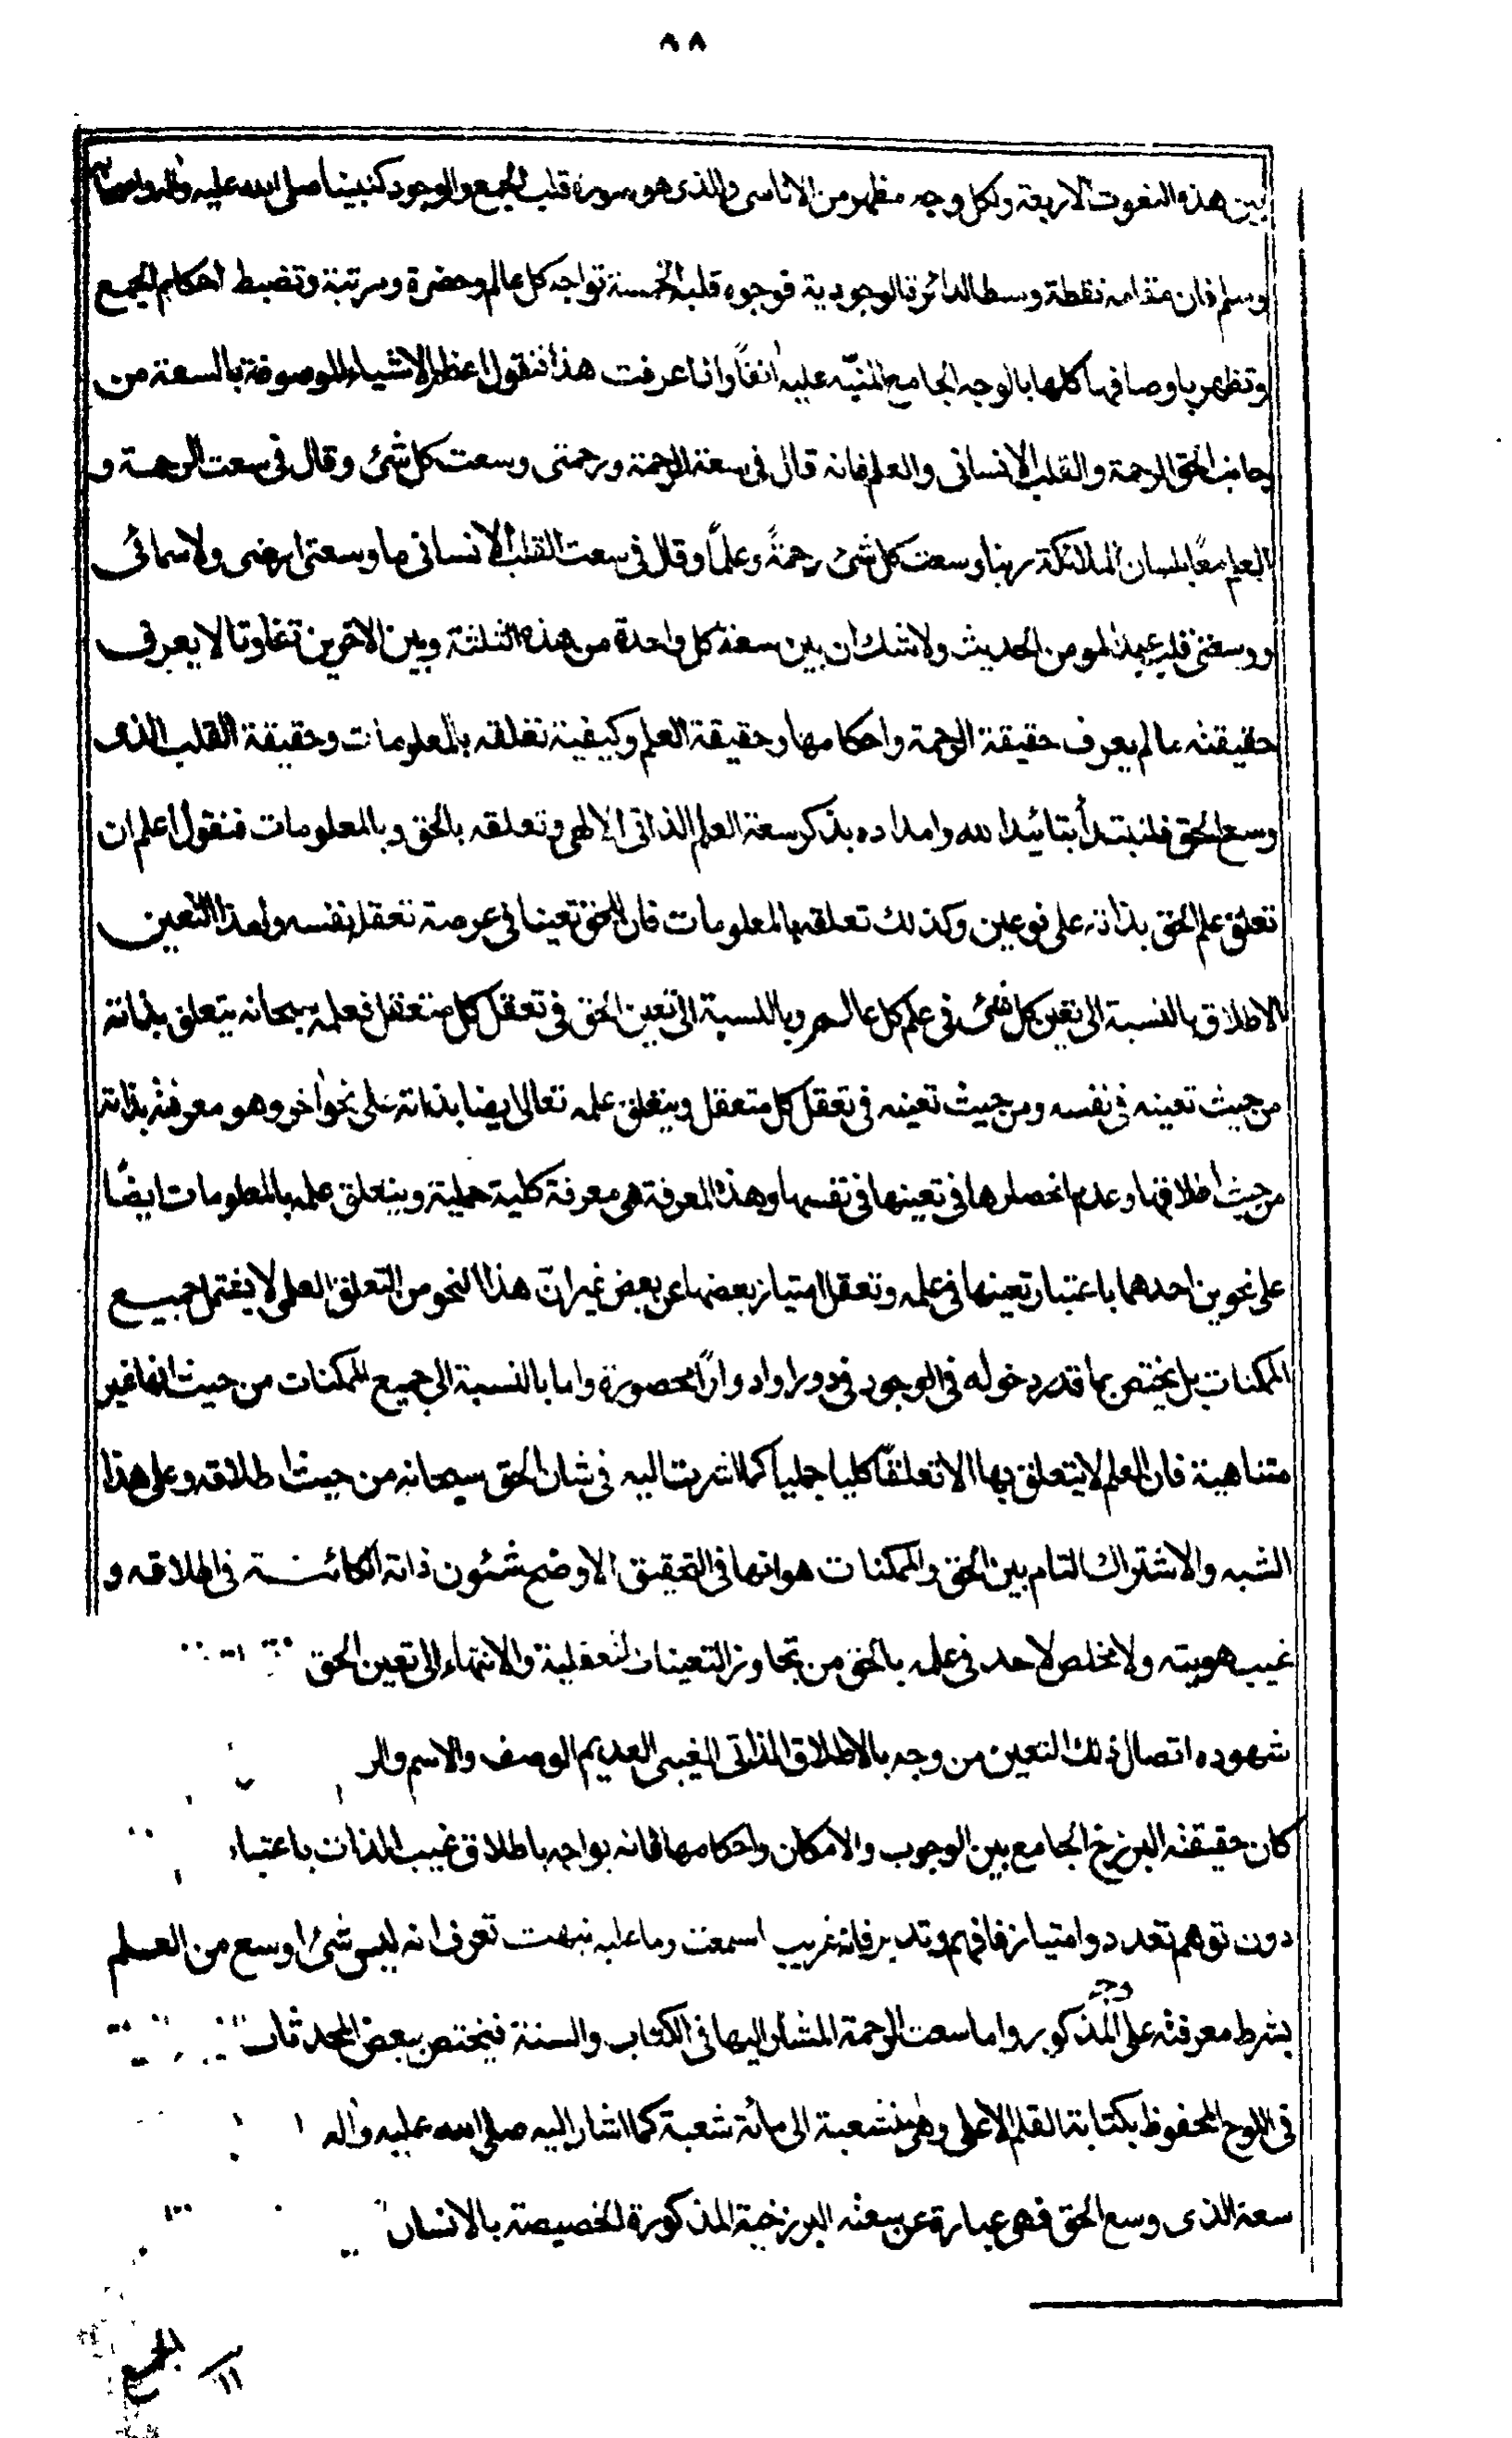 ٨٨
بين هذه النعوت الاربعة ولكل وجه مظهر من الاناسى والذى هو صورة قلب الجمع والوجود كنبينا صلى الله عليه واله واصحابه
وسلم فان مقامه نقطة وسط الدائرة الوجودية فوجوه قلبه الخمسة تواجه كل عالم وحضرة ومرتبة وتضبط احكام الجميع
وتظهر باوصافها كلها بالوجه الجامع المنبّه عليه انفاً واذا عرفت هذا فنقول اعظم الاشياء الموصوفة بالسعة من
جانب الحق الرحمة والقلب الانسانى والعلم فانه قال فى سعة الرحمة ورحمتى وسعت كل شئ وقال فى سعت الرحمة و
العلم معًا بلسان الملائكة ربنا وسعت كل شئ رحمةً وعلمًا وقال فى سعت القلب الانسانى ما وسعنى ارضى ولا سمائى
ووسعنى قلب عبدى المومن الحديث ولا شك ان بين سعة كل واحدة من هذه الثلثة وبين الاخرين تفاوتا لا يعرف
حقيقته ما لم يعرف حقيقة الرحمة واحكامها وحقيقة العلم وكيفية تعلقه بالمعلومات وحقيقة القلب الذى
وسع الحق فلنبتدأ بتائيد الله وامداده بذكر سعة العلم الذاتى الالهى وتعلقه بالحق وبالمعلومات فنقول اعلم ان
تعلق علم الحق بذاته على نوعين وكذلك تعلقه بالمعلومات فان للحق تعينا فى عرصة تعقل نفسه ولهذا التعين
الاطلاق بالنسبة الى تعين كل شئ فى علم كل عالم وبالنسبة الى تعين الحق فى تعقل كل متعقل فعلمه سبحانه يتعلق بذاته
من حيث تعينه فى نفسه ومن حيث تعينه فى تعقل كل متعقل ويتعلق علمه تعالى ايضا بذاته على نحو اخر وهو معرفته بذاته
من حيث اطلاقها وعدم انحصارها فى تعينها فى نفسها وهذه المعرفة هى معرفة كلية جملية ويتعلق علمه بالمعلومات ايضًا
على نحوين احدهما باعتبار تعينها فى علمه وتعقل امتياز بعضها عن بعض غير انّ هذا النحو من التعلق العلمى لا يشتمل جميع
الممكنات بل يختص بما قدر دخوله فى الوجود فى دور او ادوارًا محصورة واما بالنسبة الى جميع الممكنات من حيث انها غير
متناهية فان العلم لا يتعلق بها الا تعلقًا كليا جمليا كما اشرت اليه فى شان الحق سبحانه من حيث اطلاقه وعلى هذا
الشبه والاشتراك التام بين الحق والممكنات هو انها فى التحقيق الاوضح شئون ذاته الكائنة فى اطلاقه و
غيب هويته ولا يخلص لاحد فى علمه بالحق من تجاوز التعينات التعقلية والانتهاء الى تعين الحق
شهوده اتصال ذلك التعين من وجه بالاطلاق الذاتى الغيبى العديم الوصف والاسم والر
كان حقيقته البرزخ الجامع بين الوجوب والامكان واحكامها فانه يواجه باطلاق غيب الذات باعتبار
دون توهم تعدد وامتياز فافهم وتدبر فانه غريب اسمعت وما عليه نبهت تعرف انه ليس شئ اوسع من العلم
بشرط معرفته على وجه المذكور واما سعت الرحمة المشار اليها فى الكتاب والسنة فيختص ببعض المحدثات
فى اللوح المحفوظ بكتابة القلم الاعلى وهى منشعبة الى مائة شعبة كما اشار اليه صلى الله عليه واله
سعة الذى وسع الحق فهى عبارة عن سعته البرزخية المذكورة الخصيصة بالانسان
الجمع
١١